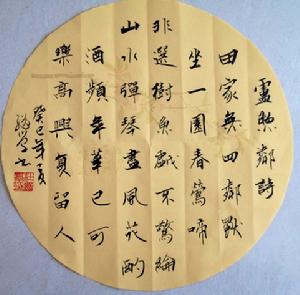 盧照鄰詩
田家無四鄰獨
坐一園春鶯啼
非選樹魚戲不驚綸
山水彈琴盡風花酌
酒頻年華已可
樂高興復留人
癸巳年夏